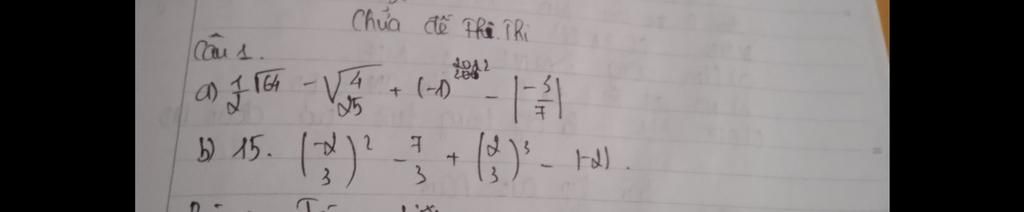 Chữa đề Thi Thử
Câu 1.
a) 1/2 √64 - √(4/25) + (-1)^2022 - |-3/7|
b) 15. (-2/3)^2 - 7/3 + (2/3)^3 - |-2| .